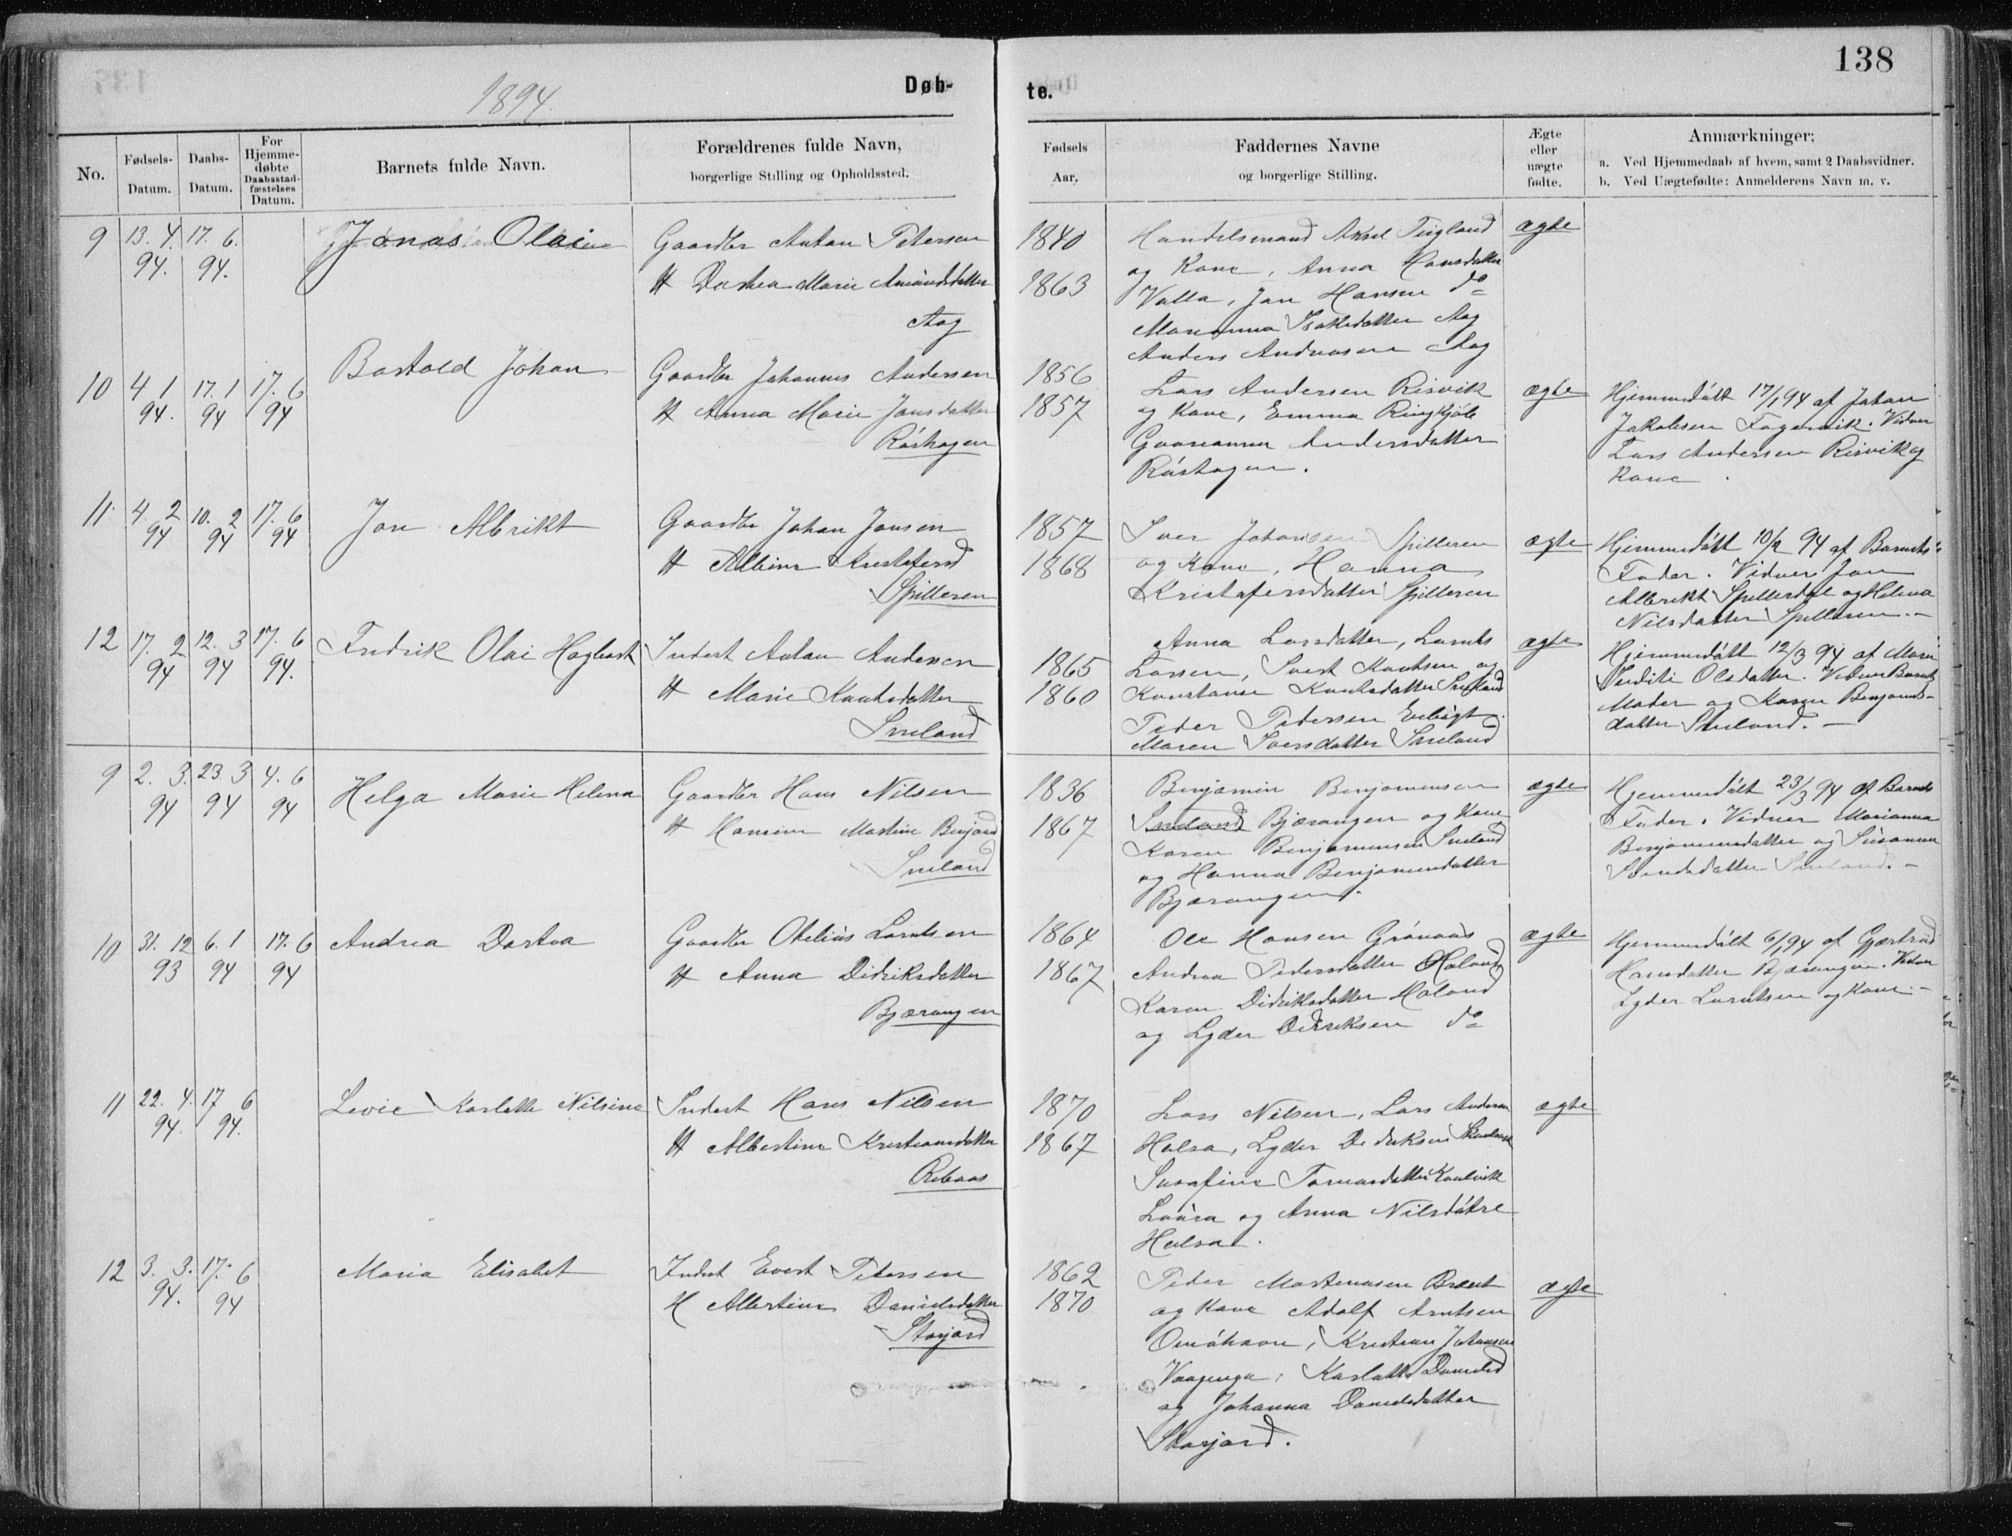 138
1894
Døb-
te.
No.
Fødsels-
Datum.
Daabs-
Datum.
For
Hjemme-
døbte
Daabsstad-
fæstelses
Datum.
Barnets fulde Navn.
Forældrenes fulde Navn,
borgerlige Stilling og Opholdssted.
Fødsels
Aar.
Faddernes Navne
og borgerlige Stilling.
Ægte
eller
uægte
fødte.
Anmærkninger:
a. Ved Hjemmedaab af hvem, samt 2 Daabsvidner.
b. Ved Uægtefødte: Anmelderens Navn m. v.
9 13. 4. 17. 6.
94. 94.
Jonas Olai
Gaardbr Anton Petersen
H Dorthea Marie Amundsdatter
Aag
1840
1863
Handelsmand Aksel
og Kone, Anna Hansdatter
Valla, Jan Hansen do
Marianna Isaksdatter Aag
Anders Andreasen Aag
ægte
10 4 1 17. 1 17. 6
94. 94 94
Bastold Johan
Gaardbr Johannes Andersen
H Anna Marie Jansdatter
Røshagen
1856
1857
Lars Andersen Risvik
og Kone, Emma
Andersdatter
Røshagen.
ægte
Hjemmedøbt 17/1 94 af Johan
Jakobsen Fagervik. Vidner
Lars Andersen Risvik og
Kone.
11. 4 2 10. 2 17. 6
94 94 94
Jon Albrikt
Gaardbr Johan Jonsen
H Albine Kristofersd
Spilleren
1857
1868
Iver Johansen Spilleren
og Kone, Hanna
Kristofersdatter Spilleren
ægte
Hjemmedøbt 10/2 94 af Barnets
Fader. Vidner Jon
Albrikt og Helena
Nilsdatter Spilleren.-
12 17. 2 12. 3 17. 6
94 94 94.
Fredrik Olai Hagbart
Inderst Anton Andersen
H Marie Knutsdatter
Sneland
1865
1860
Anna Larsdatter, Lorents
Larsen, Sivert Knutsen og
Konstanse Knutsdatter Sneland
Peder Pedersen
Maren Sneland
ægte
Hjemmedøbt 12/3 94 af
Olsdatter. Vidner Barnets
Moder og Karen Benjamins-
datter Sneland. -
9 2. 3. 23. 3 4. 6
94 94 94
Helga Marie Helena
Gaardbr Hans Nilsen
H Hansine Martine Benjamd
Sneland
1836
1867
Benjamin Benjaminsen
Sneland Bjærangen og Kone
Karen Benjaminsen Sneland
og Hanna Benjaminsdatter
Bjærangen.
ægte
Hjemmedøbt 23/3 94 af Barnets
Fader. Vidner Marianna
Benjaminsdatter og Susanna
Sneland. -
10 31. 12 6. 1 17. 6
93 94 94
Andrea Dortea
Gaardbr Otelius Lorntsen
H Anna Didriksdatter
Bjærangen
1864
1867
Ole Hansen Grønaas
Andrea Pedersdatter Holand
Karen Didriksdatter Holand
og Lyder Didriksen do
ægte
Hjemmedøbt 6/1 94 af Gjertrud
Hansdatter Bjærangen. Vidner
Lyder Lorntsen og Kone. -
11 22. 4. 17 6
94. 94.
Levie Karlotte Nilsine
Inderst Hans Nilsen
H Albertine Kristiansdatter
Rebaas
1870
1867
Lars Nilsen, Lars Andersen
Halsa, Lyder Didriksen
Serafine
Laura og Anna Nilsdøtre
Halsa.
ægte
12 3. 3. 17. 6
94. 94
Maria Elisabet
Inderst Evert Petersen
H Albertine Danielsdatter
Storjord
1862
1870
Peder Mortensen
og Kone Adolf Arntsen
Kristian Johansen
Karlotte Danielsd
og Johanna Danielsdatter
Storjord.
ægte